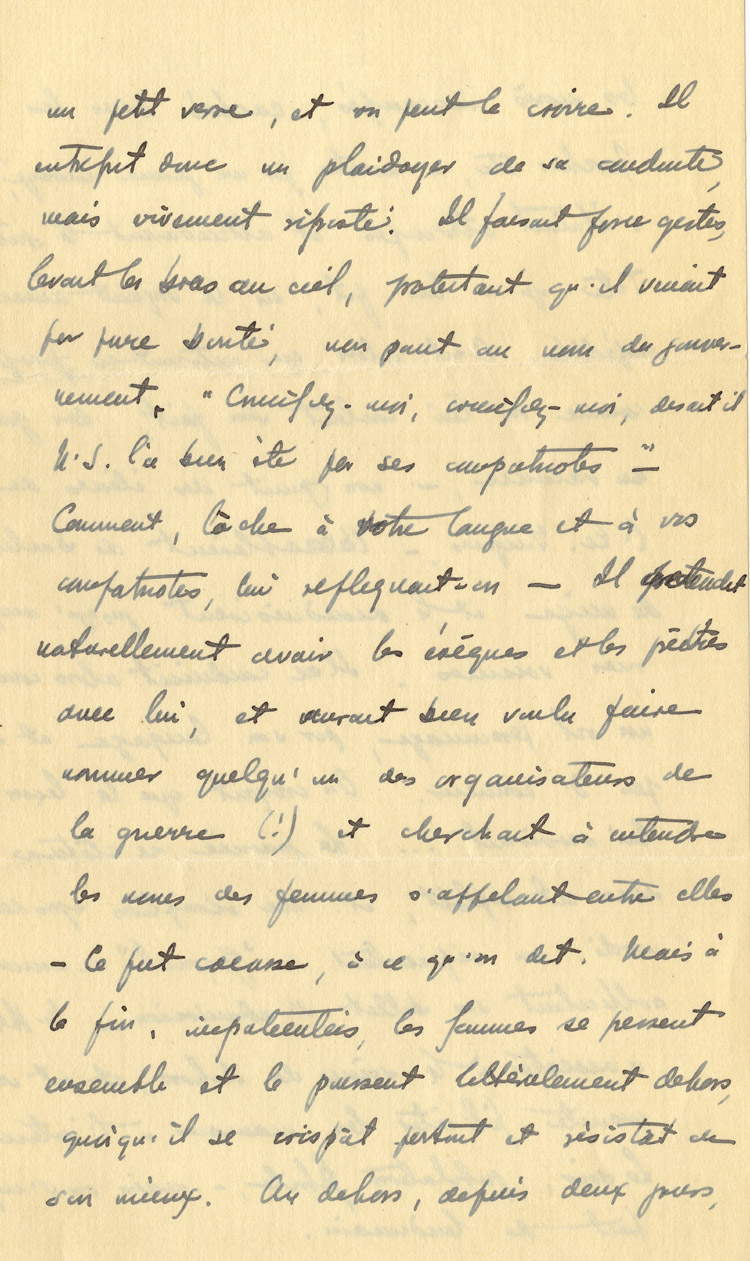 un petit verre, et on peut le croire. Il
entreprit donc un plaidoyer de sa conduite,
mais vivement riposté. Il faisait force gestes,
levant les bras au ciel, protestant qu'il venait
par pure bonté, non point au nom du gouver-
nement. "Crucifiez-moi, crucifiez-moi, disait il
N.S. l'a bien été par ses compatriotes" —
Comment, lâche à votre langue et à vos
compatriotes, lui répliquait-on — Il prétendit
naturellement avoir les évêques et les prêtres
avec lui, et aurait bien voulu faire
nommer quelqu'un des organisateurs de
la guerre (!) et cherchait à entendre
les noms des femmes s'appelant entre elles
— Ce fut cocasse, à ce qu'on dit. Mais à
la fin, impatientées, les femmes se pressent
ensemble et le pressent littéralement dehors,
quoiqu'il se crispât partout et résistât de
son mieux. Au dehors, depuis deux jours,